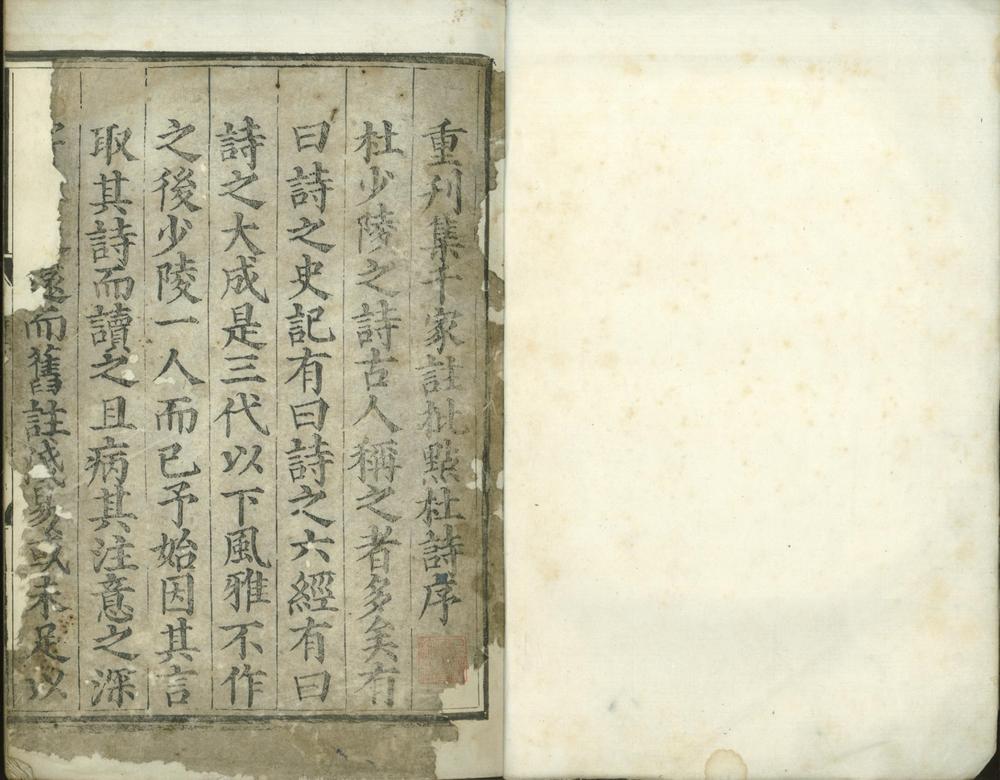 重刊集千家註批點杜詩序
杜少陵之詩古人稱之者多矣有
曰詩之史記有曰詩之六經有曰
詩之大成是三代以下風雅不作
之後少陵一人而已予始因其言
取其詩而讀之且病其注意之深
遠而舊註淺易或未足以